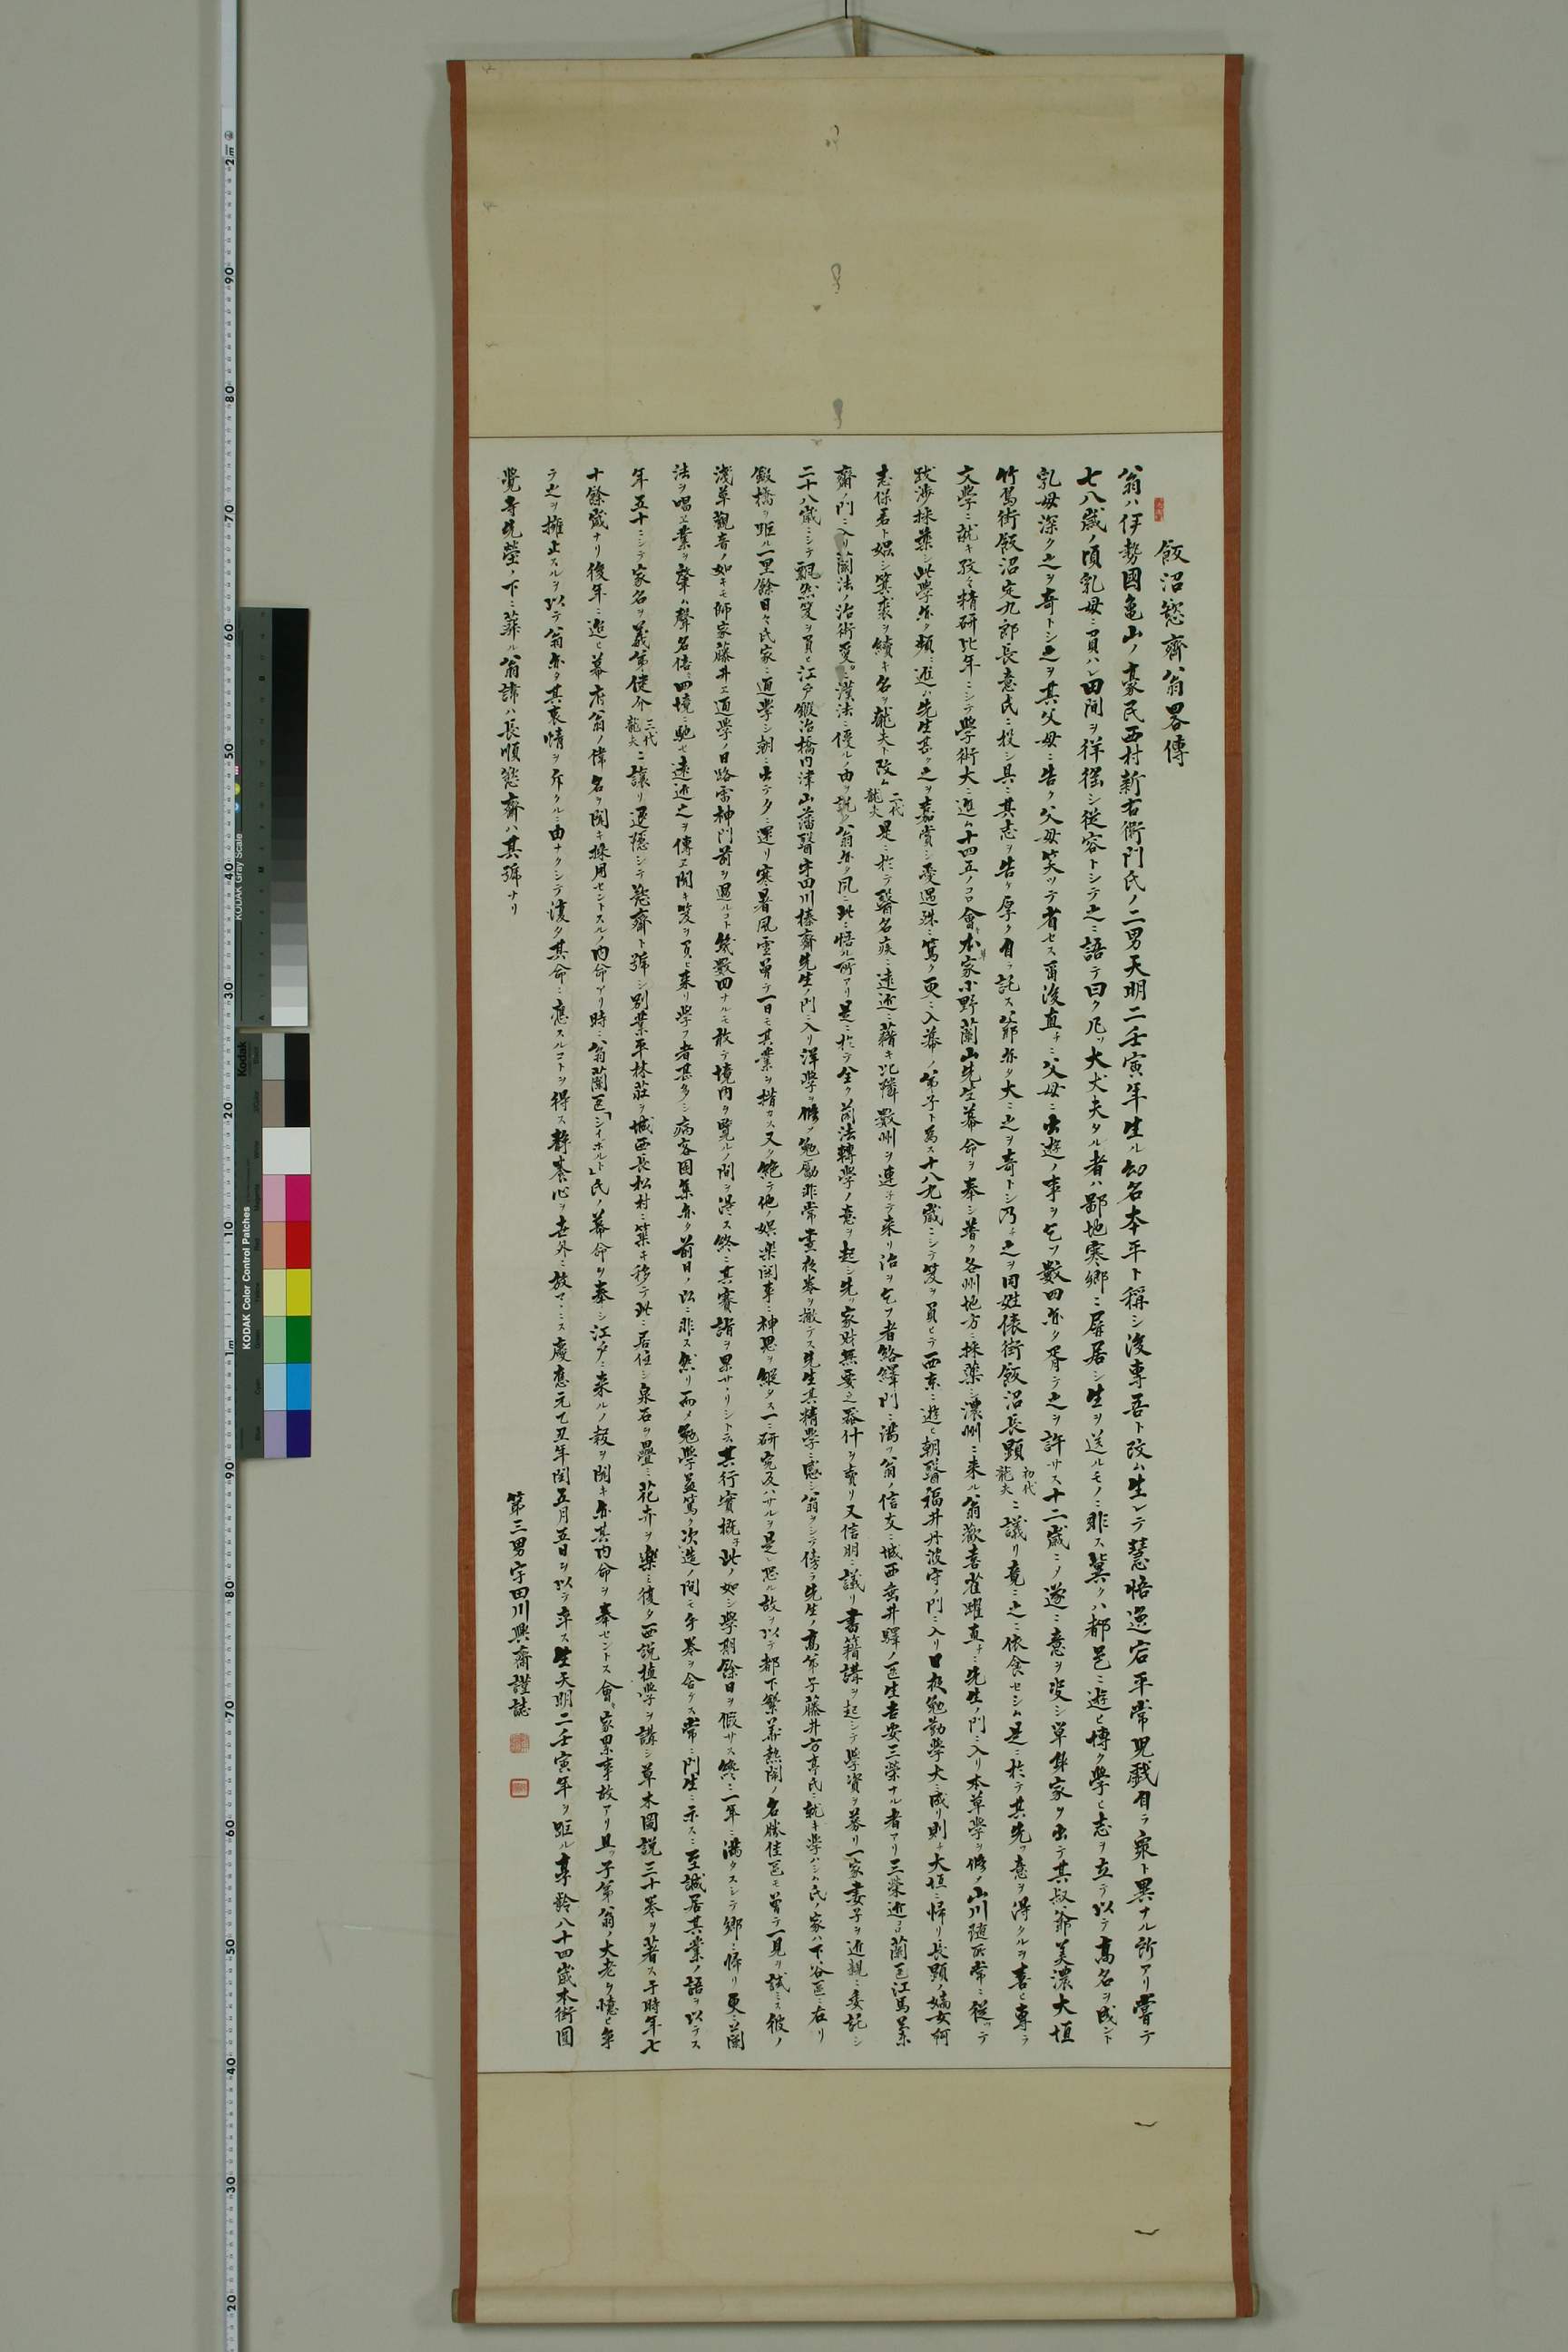 飯沼慾齋翁畧傳
翁ハ伊勢國亀山ノ豪民西村新右衛門氏ノ二男天明二壬寅年生ル幼名本平ト稱シ後專吾ト改ム生レテ慧悟逸宕平常児戯自ラ衆ト異ナル所アリ嘗テ
七八歳ノ頃乳母ニ負ハレ田間ヲ徉徭シ従容トシテ之ニ語テ曰ク凡ッ大丈夫タル者ハ鄙地寒郷ニ屏居シ生ヲ送ルモノニ非ス冀クハ都邑ニ遊ヒ博ク學ヒ志ヲ立テ以テ髙名ヲ成ント
乳母深ク之ヲ竒トシ之ヲ其父母ニ告ク父母笑ッテ省セス爾後直チニ父母ニ出遊ノ事ヲ乞フ數四亦タ胥テ之ヲ許サス十二歳ニノ遂ニ意ヲ決シ単身家ヲ出テ其叔爺美濃大垣
竹嶌街飯沼定九郎長意氏ニ投シ具ニ其志ヲ告ケ厚ク自ラ託ス爺亦タ大ニ之ヲ竒トシ乃チ之ヲ同姓俵街飯沼長顕初代龍夫ニ議リ竟ニ之ニ依食セシム是ニ於テ其先ッ意ヲ得タルヲ喜ヒ專ラ
文學ニ就キ孜々精研比年ニシテ學術大ニ進ム十四五ノコロ會々本家小野蘭山先生幕命ヲ奉シ普ク各州地方ニ採藥シ濃州ニ来ル翁歡喜雀躍直チニ先生ノ門ニ入リ本草學ヲ修ノ山川随所常ニ従ッテ
跋渉採藥シ此學亦タ頻ニ進ハ先生甚タ之ヲ嘉賞シ愛遇殊ニ篤ク更ニ入幕ノ弟子ト為ス十八九歳ニシテ笈ヲ負ヒテ西京ニ遊ヒ朝醫福井丹波守ノ門ニ入リ日夜勉勤學大ニ成リ則チ大垣ニ帰リ長顕ノ嫡女何
志保君ト娯シ箕裘ヲ續キ名ヲ龍夫ト改ム二代龍夫是ニ於テ醫名疾ニ遠近ニ藉キ比隣數州ヲ連子テ来リ治ヲ乞フ者絡繹門ニ満ツ翁ノ信友ニ城西垂井驛ノ医生吉安三榮ナル者アリ三榮近コロ蘭医江馬蘭
齋ノ門ニ入リ蘭法ノ治術漢法ニ優ルノ由ヲ説ク翁亦タ夙ニ此ニ悟ル所アリ是ニ於テ全ク蘭法轉學ノ意ヲ起シ先ッ家財無要之器什ヲ賣リ又信朋ニ議リ書籍講ヲ起シテ學資ヲ募リ一家妻子ヲ近親ニ委託シ
二十八歳ニシテ飄然笈ヲ負ヒ江戸鍛冶橋内津山藩醫宇田川榛齋先生ノ門ニ入リ洋學ヲ修ク勉勵非常晝夜巻ヲ撤テス先生其精學ニ感シ翁ヲシテ傍ラ先生ノ髙弟子藤井方亭氏ニ就キ学ハシム氏ノ家ハ下谷區ニ在リ
鍛橋ヲ距ル一里餘日々氏家ニ通學シ朝ニ出テ夕ニ還リ寒暑風雪曽テ一日モ其業ヲ措カス又タ絶テ他ノ娯楽閑事ニ神思ヲ縦タス一ニ研究及ハサルヲ是レ恐ル故ヲ以テ都下繁華熱閙ノ名勝佳區モ曽テ一見ヲ試ミス彼ノ
淺草觀音ノ如キモ師家藤井エ通學ノ日路雷神門前ヲ過ルコト幾數四ナルモ敢テ境内ヲ覽ルノ間ヲ得ス終ニ其賽詣ヲ果サヽリシト云其行實概子此ノ如シ學期餘日ヲ假サス終ニ一年ニ満タスシテ郷ニ帰リ更ニ蘭
法ヲ唱エ業ヲ肇ム聲名倍々四境ニ馳セ遠近之ヲ傳エ聞キ笈ヲ負ヒ来リ學フ者甚多シ病客因集亦タ前日ノ以ニ非ス然リ而メ勉學益篤ク次造ノ間モ手巻ヲ舎テス常ニ門生ニ示スニ至誠居其業ノ語ヲ以テス
年五十ニシテ家名ヲ義弟健介三代龍夫ニ譲リ退隠シテ慾齋ト號シ別業平林荘ヲ城西長松村ニ築キ移テ此ニ居住シ泉石ヲ疊ミ花卉ヲ樂ミ復タ西説植學ヲ講シ草木圖説三十巻ヲ著ス于時年七
十餘歳ナリ後年ニ迨ヒ幕府翁ノ偉名ヲ聞キ採用セントスルノ内命アリ時ニ翁蘭医「シイボルト」氏ノ幕命ヲ奉シ江戸ニ来ルノ報ヲ聞キ亦其内命ヲ奉セントス會々家累事故アリ且ッ子弟翁ノ大老ヲ憶ヒ牟
テ之ヲ擁止スルヲ以テ翁亦タ其衷情ヲ斥クルニ由ナクシテ復タ其命ニ應スルコトヲ得ス静養心ヲ世外ニ放マヽニス慶應元乙丑年閏五月五日ヲ以テ卒ス生天明二壬寅年ヲ距ル享齢八十四歳本街圓
覺寺先塋ノ下ニ葬ル翁諱ハ長順慾齋ハ其號ナリ
第三男宇田川興齋謹誌
KODAK Gray Scale
Kodak
KODAK Color Control Patches